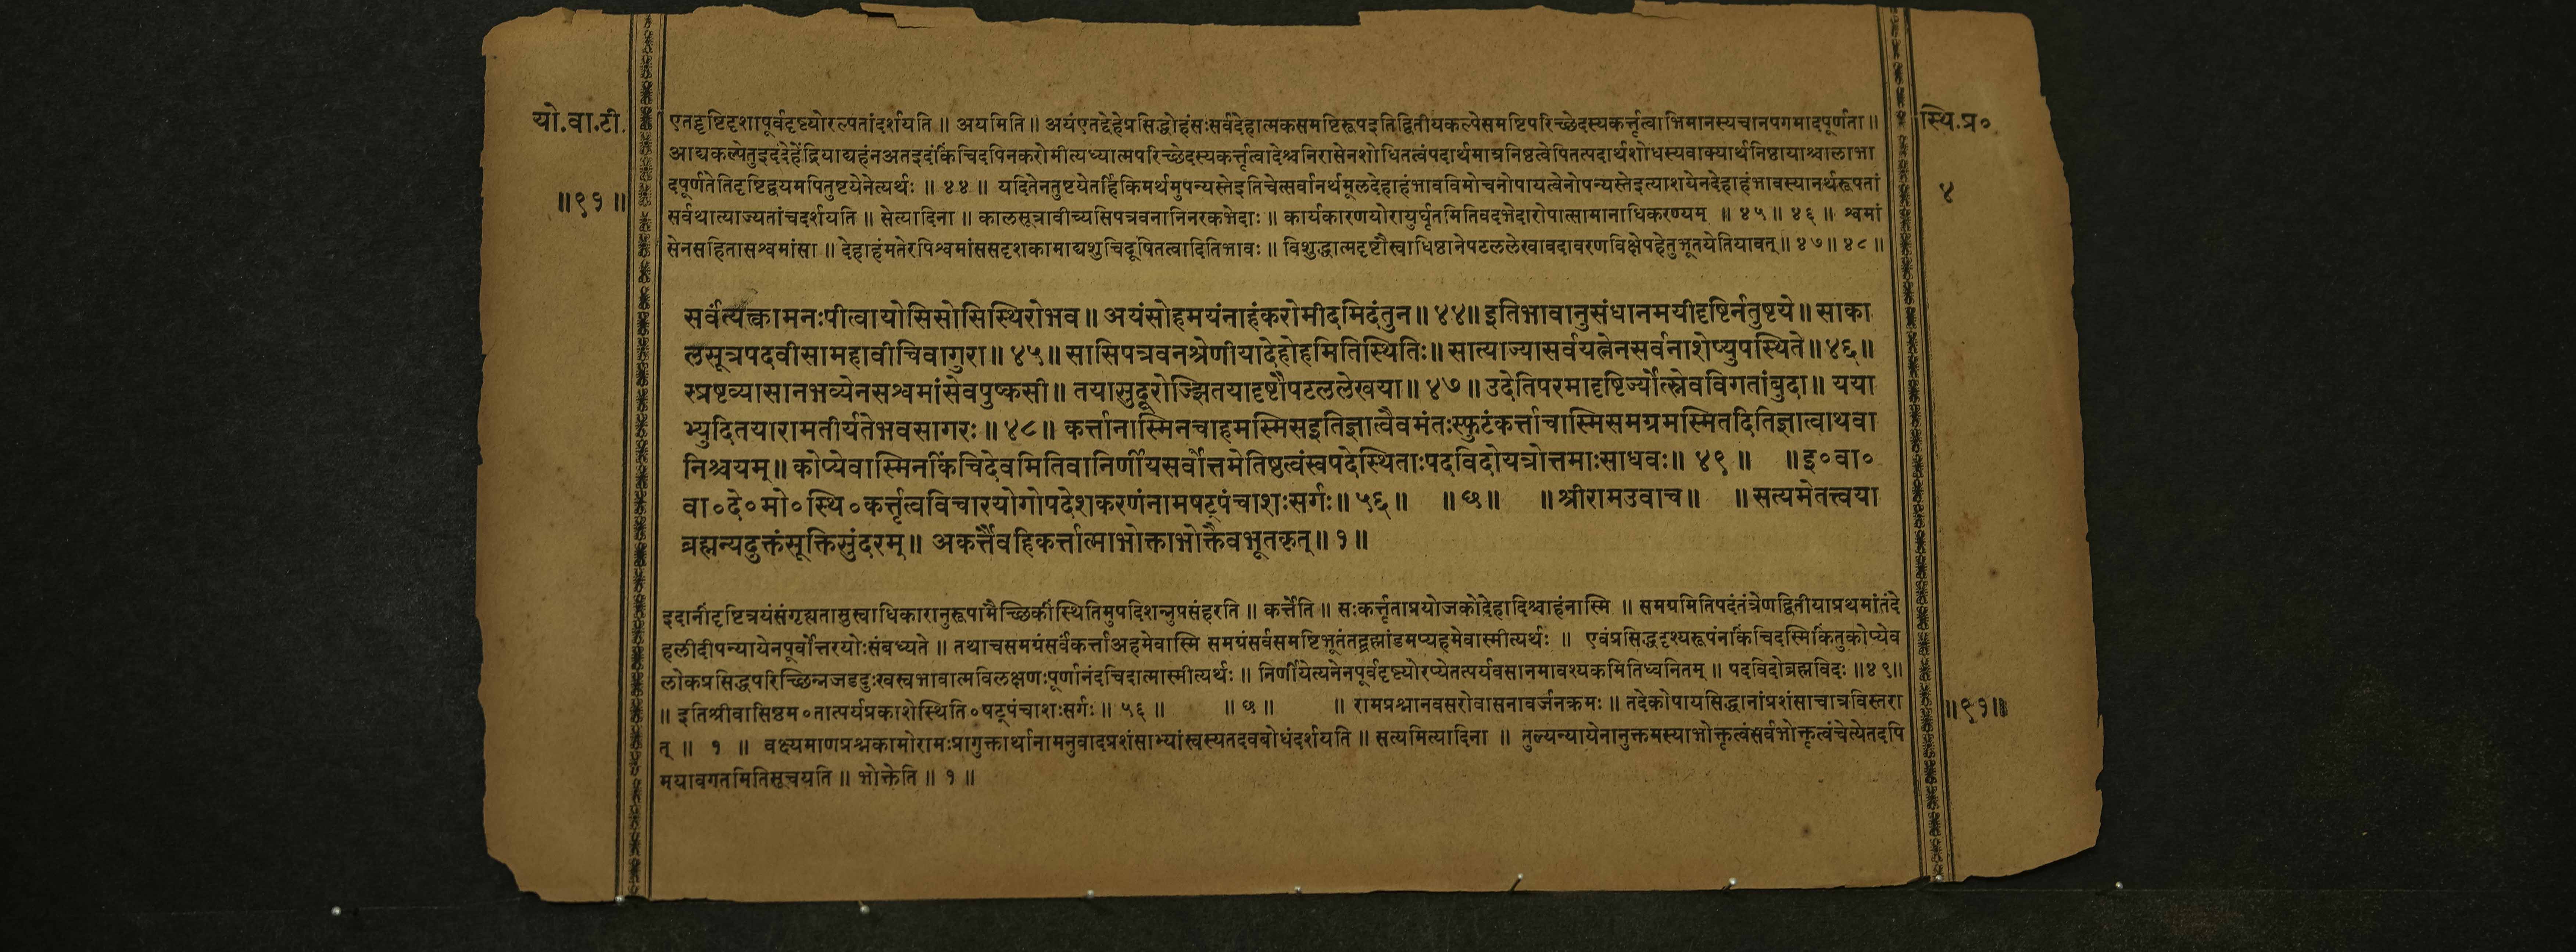 यो.वा.टी.
॥९१॥
स्थि.प्र०
४
एतद्दृष्टिदृशापूर्वदृष्ट्योरल्पतांदर्शयति ॥ अयमिति ॥ अयंएतद्देहेप्रसिद्धोहंसःसर्वदेहात्मकसमष्टिरूपइतिद्वितीयकल्पेसमष्टिपरिच्छेदस्यकर्त्तृत्वाभिमानस्यचानपगमादपूर्णता ॥
आद्यकल्पेतुइदंदेहेंद्रियाद्यहंनअतइदंकिंचिदपिनकरोमीत्यध्यात्मपरिच्छेदस्यकर्त्तृत्वादेश्चनिरासेनशोधितत्वंपदार्थमात्रनिष्ठत्वेपितत्पदार्थशोधस्यवाक्यार्थनिष्ठायाश्चालाभा
दपूर्णतेतिदृष्टिद्वयमपितुष्टयेनेत्यर्थः ॥ ४४ ॥ यदितेनतुष्टयेतर्हिकिमर्थमुपन्यस्तेइतिचेत्सर्वानर्थमूलदेहाहंभावविमोचनोपायत्वेनोपन्यस्तेइत्याशयेनदेहाहंभावस्यानर्थरूपतां
सर्वथात्याज्यतांचदर्शयति ॥ सेत्यादिना ॥ कालसूत्रावीच्यसिपत्रवनानिनरकभेदाः ॥ कार्यकारणयोरायुर्घृतमितिवदभेदारोपात्सामानाधिकरण्यम् ॥ ४५ ॥ ४६ ॥ श्वमां
सेनसहितासश्वमांसा ॥ देहाहंमतेरपिश्वमांससदृशकामाद्यशुचिदूषितत्वादितिभावः ॥ विशुद्धात्मदृष्टौस्वाधिष्ठानेपटललेखावदावरणविक्षेपहेतुभूतयेतियावत् ॥ ४७ ॥ ४८ ॥
सर्वंत्यक्त्वामनःपीत्वायोसिसोसिस्थिरोभव ॥ अयंसोहमयंनाहंकरोमीदमिदंतुन ॥ ४४ ॥ इतिभावानुसंधानमयीदृष्टिर्नतुष्टये ॥ साका
लसूत्रपदवीसामहावीचिवागुरा ॥ ४५ ॥ सासिपत्रवनश्रेणीयादेहोहमितिस्थितिः ॥ सात्याज्यासर्वयत्नेनसर्वनाशेप्युपस्थिते ॥ ४६ ॥
स्प्रष्टव्यासानभव्येनसश्वमांसेवपुष्कसी ॥ तयासुदूरोज्झितयादृष्टौपटललेखया ॥ ४७ ॥ उदेतिपरमादृष्टिर्ज्योत्स्नेवविगतांबुदा ॥ यया
भ्युदितयारामतीर्यतेभवसागरः ॥ ४८ ॥ कर्त्तानास्मिनचाहमस्मिसइतिज्ञात्वैवमंतःस्फुटंकर्त्ताचास्मिसमग्रमस्मितदितिज्ञात्वाथवा
निश्चयम् ॥ कोप्येवास्मिनकिंचिदेवमितिवानिर्णीयसर्वोत्तमेतिष्ठत्वंस्वपदेस्थिताःपदविदोयत्रोत्तमाःसाधवः ॥ ४९ ॥ ॥ इ०वा०
वा०दे०मो०स्थि०कर्त्तृत्वविचारयोगोपदेशकरणंनामषट्पंचाशःसर्गः ॥ ५६ ॥ ॥ छ ॥ ॥ श्रीरामउवाच ॥ ॥ सत्यमेतत्त्वया
ब्रह्मन्यदुक्तंसूक्तिसुंदरम् ॥ अकर्त्तैवहिकर्त्तात्माभोक्ताभोक्तैवभूतकृत् ॥ १ ॥
इदानींदृष्टित्रयंसंगृह्यतासुस्वाधिकारानुरूपामैच्छिकींस्थितिमुपदिशन्नुपसंहरति ॥ कर्त्तेति ॥ सःकर्त्तृताप्रयोजकोदेहादिश्चाहंनास्मि ॥ समग्रमितिपदंतंत्रेणद्वितीयाप्रथमांतंदे
हलीदीपन्यायेनपूर्वोत्तरयोःसंबध्यते ॥ तथाचसमग्रंसर्वंकर्त्ताअहमेवास्मि समग्रंसर्वसमष्टिभूतंतद्ब्रह्मांडमप्यहमेवास्मीत्यर्थः ॥ एवंप्रसिद्धदृश्यरूपंनकिंचिदस्मिकिंतुकोप्येव
लोकप्रसिद्धपरिच्छिन्नजडदुःखस्वभावात्मविलक्षणःपूर्णानंदचिदात्मास्मीत्यर्थः ॥ निर्णीयेत्यनेनपूर्वदृष्ट्योरप्येतत्पर्यवसानमावश्यकमितिध्वनितम् ॥ पदविदोब्रह्मविदः ॥४९॥
॥ इतिश्रीवासिष्ठम०तात्पर्यप्रकाशेस्थिति०षट्पंचाशःसर्गः ॥ ५६ ॥ ॥ छ ॥ ॥ रामप्रश्नानवसरोवासनावर्जनक्रमः ॥ तदेकोपायसिद्धानांप्रशंसाचात्रविस्तरा
त् ॥ १ ॥ वक्ष्यमाणप्रश्नकामोरामःप्रागुक्तार्थानामनुवादप्रशंसाभ्यांस्वस्यतदवबोधंदर्शयति ॥ सत्यमित्यादिना ॥ तुल्यन्यायेनानुक्तमस्याभोक्तृत्वंसर्वभोक्तृत्वंचेत्येतदपि
मयावगतमितिसूचयति ॥ भोक्तेति ॥ १ ॥
॥९१॥